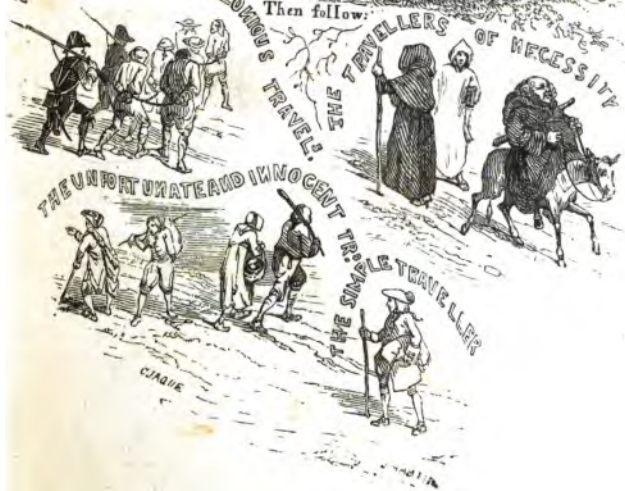 Then follow:
TRAVEL:
THE TRAVELLERS OF NECESSITY
THE UNFORTUNATE AND INNOCENT TR:
THE SIMPLE TRAVELLER
C.JAQUE